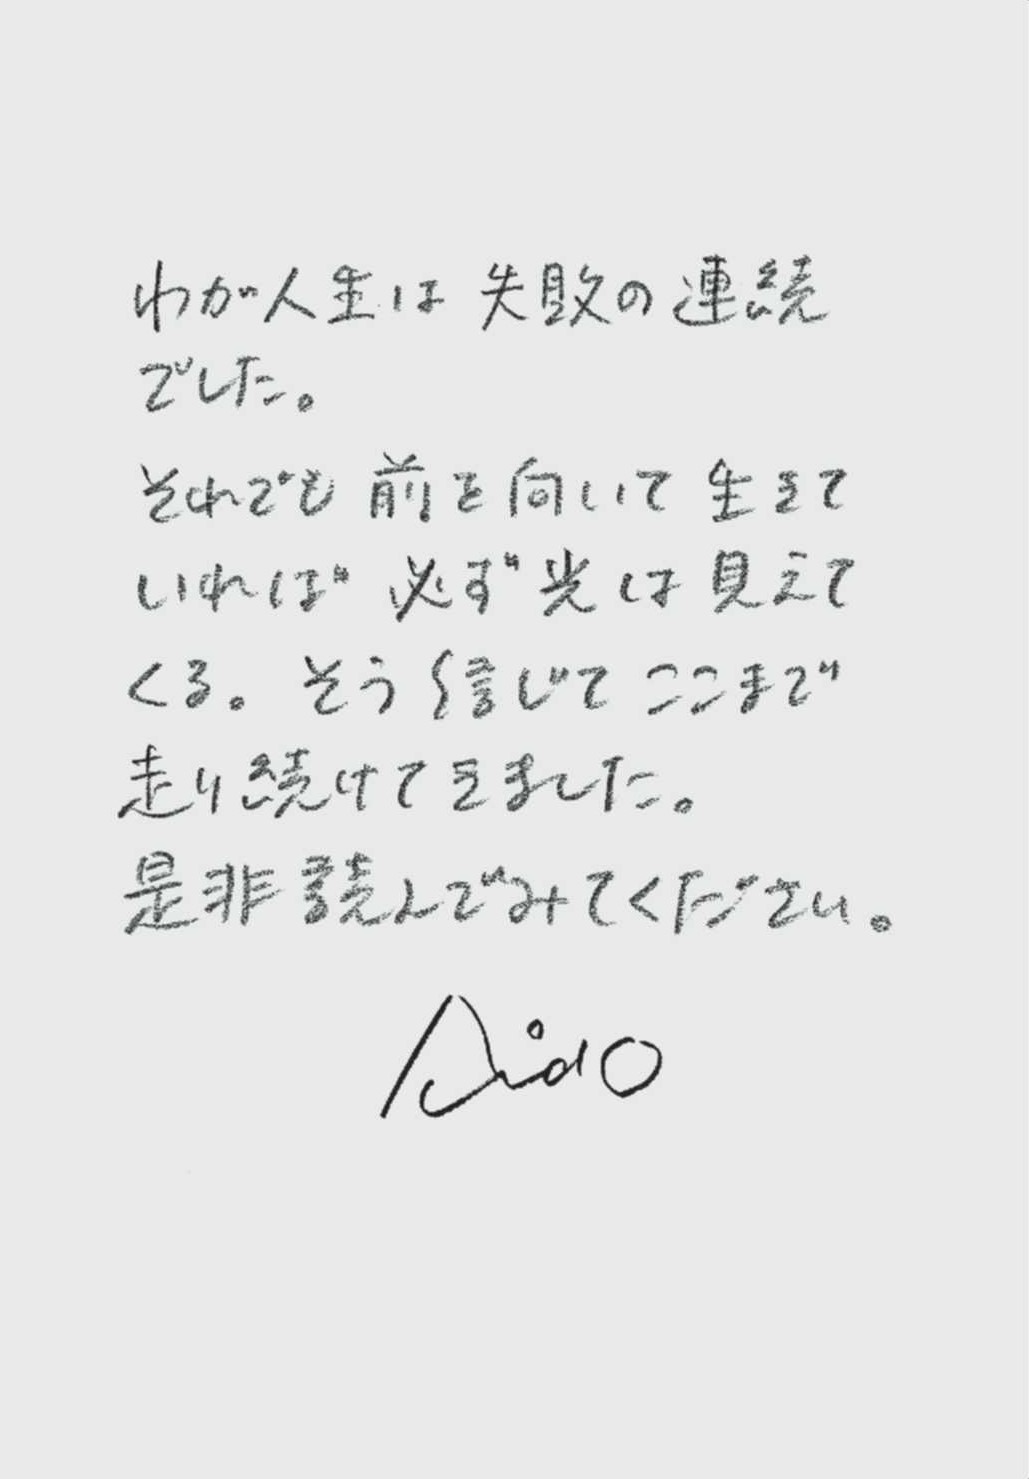 わが人生は失敗の連続
でした。
それでも前を向いて生きて
いれば必ず光は見えて
くる。そう信じてここまで
走り続けてきました。
是非読んでみてください。